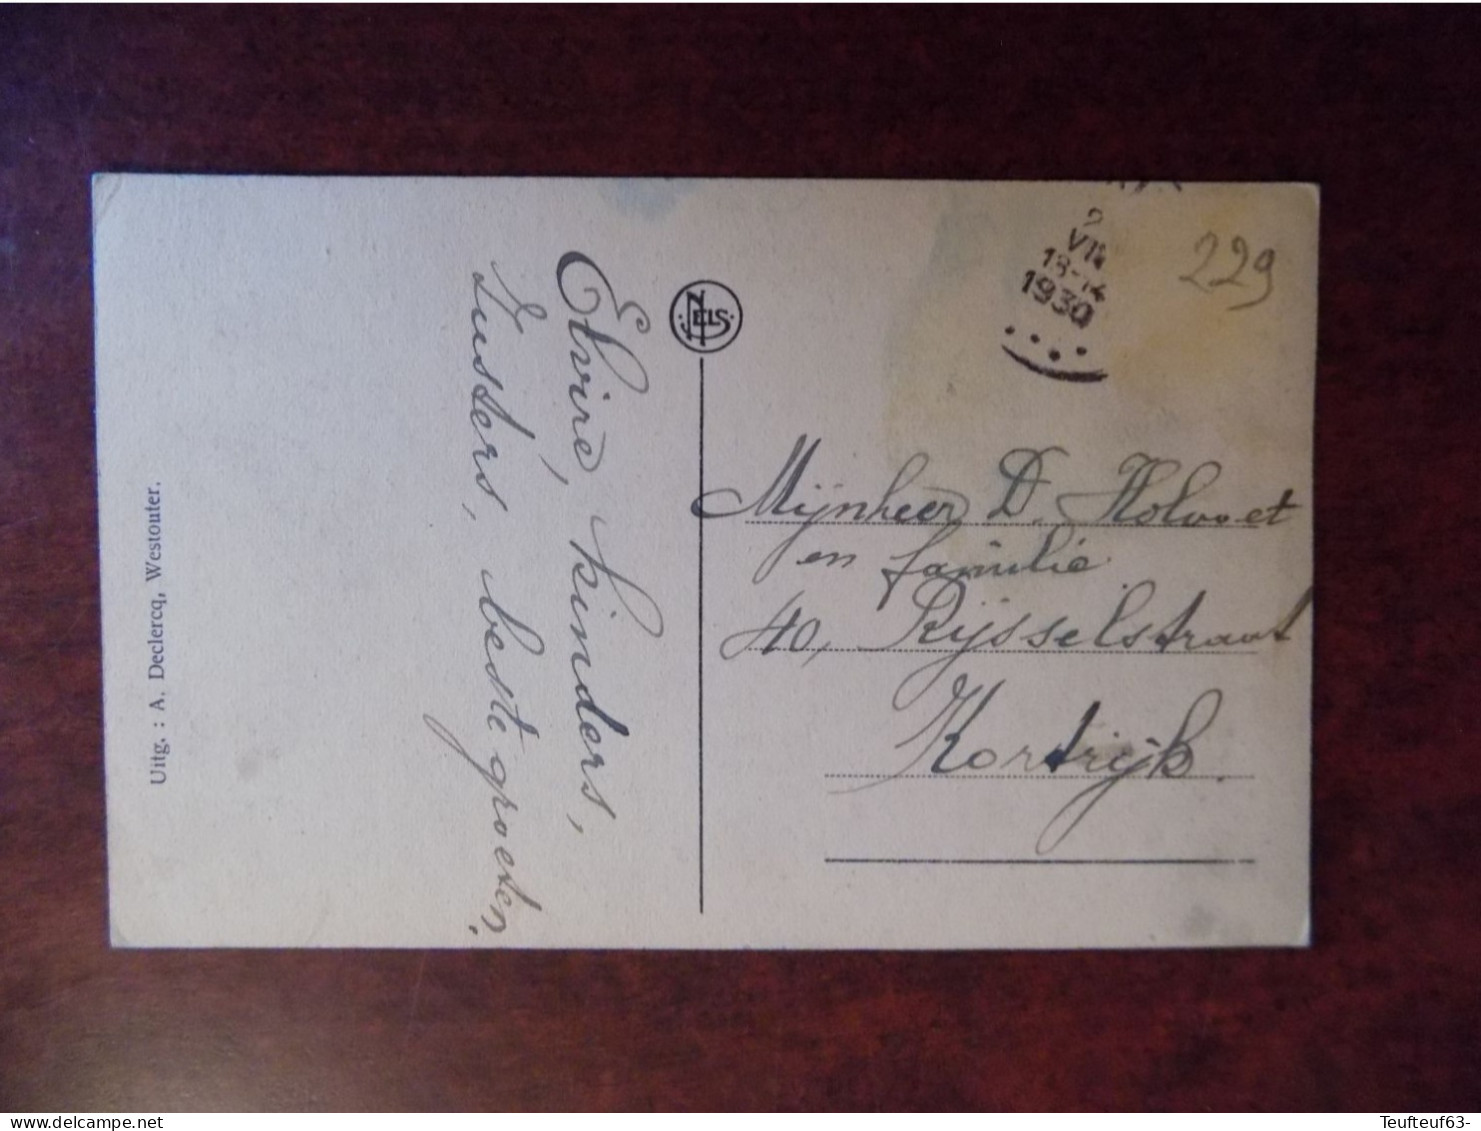 Uitg. : A. Declercq, Westouter.
Elvire, kinders,
Zusters, beste groeten.
NELS
VII
13-14
1930
229
Mijnheer D. Holvoet
en familie
40, Rijsselstraat
Kortrijk.
Teufteuf63- delcampe.net